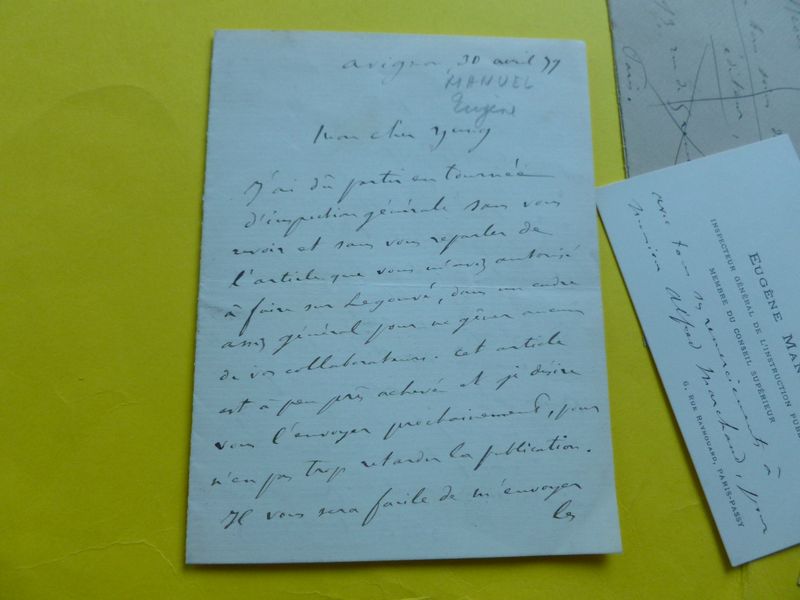 avignon, 30 avril 77
MANUEL
Eugène
Mon cher Yung
J'ai dû partir en tournée
d'inspection générale sans vous
revoir et sans vous reparler de
l'article que vous m'avez autorisé
à faire sur Legouvé, dans un cadre
assez général pour ne gêner aucun
de vos collaborateurs. Cet article
est à peu près achevé et je désire
vous l'envoyer prochainement, pour
n'en pas trop retarder la publication.
Il vous sera facile de m'envoyer
les
EUGÈNE MAN
INSPECTEUR GÉNÉRAL DE L'INSTRUCTION PUBL
MEMBRE DU CONSEIL SUPÉRIEUR
6, RUE RAYNOUARD, PARIS-PASSY
avec tous ses remerciements à
Monsieur Alfred Marchand, pour
rue de
Paris.